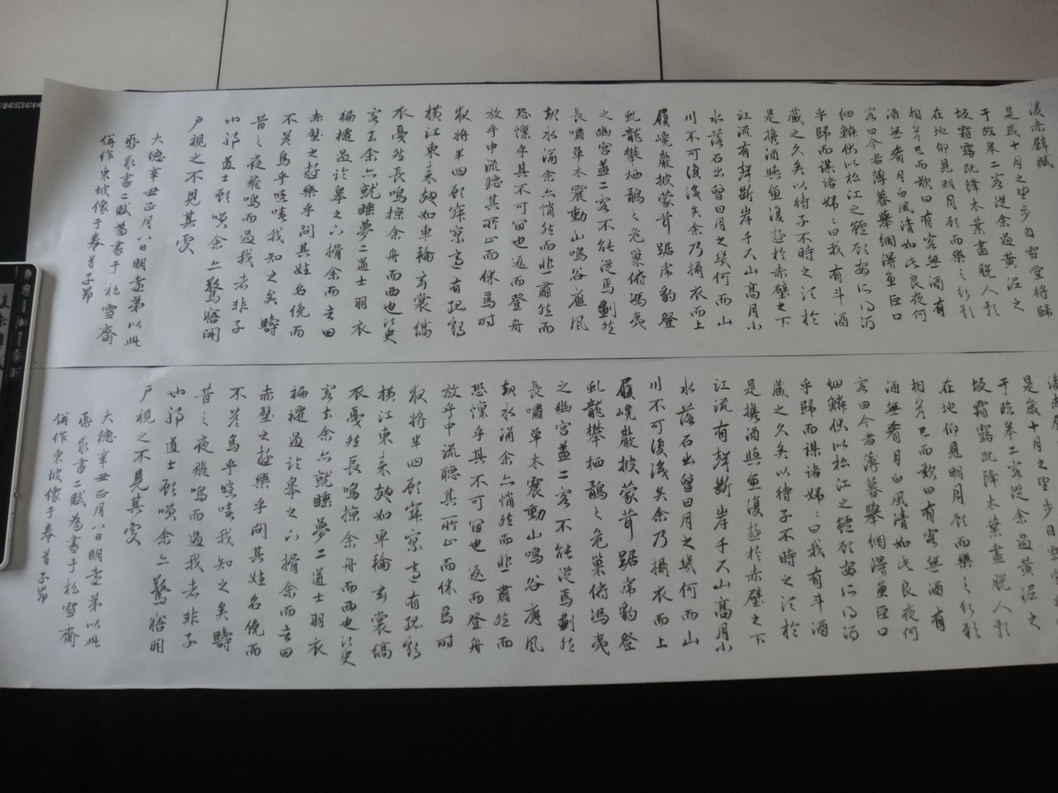 後赤壁賦
是歲十月之望步自雪堂將歸
于臨皋二客從余過黃泥之
坂霜露既降木葉盡脫人影
在地仰見明月顧而樂之行歌
相答已而歎曰有客無酒有
酒無肴月白風清如此良夜何
客曰今者薄暮舉網得魚巨口
細鱗狀似松江之鱸顧安所得酒
乎歸而謀諸婦婦曰我有斗酒
藏之久矣以待子不時之須於
是攜酒與魚復遊於赤壁之下
江流有聲斷岸千尺山高月小
水落石出曾日月之幾何而山
川不可復識矣余乃攝衣而上
履巉巖披蒙茸踞虎豹登
虬龍攀栖鶻之危巢俯馮夷
之幽宮蓋二客不能從焉劃然
長嘯草木震動山鳴谷應風
起水涌余亦悄然而悲肅然而
恐凜乎其不可留也返而登舟
放乎中流聽其所止而休焉時
夜將半四顧寂寥適有孤鶴
橫江東來翅如車輪玄裳縞
衣戛然長鳴掠余舟而西也須臾
客去余亦就睡夢二道士羽衣
褊褼過臨皋之下揖余而言曰
赤壁之遊樂乎問其姓名俛而
不答嗚乎噫嘻我知之矣疇
昔之夜飛鳴而過我者非子
也耶道士顧笑余亦驚悟開
戶視之不見其處
大德辛丑正月八日明遠弟以此
紙求書二賦為書于松雪齋
併作東坡像于卷首子昂
是歲十月之望步自雪堂
于臨皋二客從余過黃泥之
坂霜露既降木葉盡脫人影
在地仰見明月顧而樂之行歌
相答已而歎曰有客無酒有
酒無肴月白風清如此良夜何
客曰今者薄暮舉網得魚巨口
細鱗狀似松江之鱸顧安所得酒
乎歸而謀諸婦婦曰我有斗酒
藏之久矣以待子不時之須於
是攜酒與魚復遊於赤壁之下
江流有聲斷岸千尺山高月小
水落石出曾日月之幾何而山
川不可復識矣余乃攝衣而上
履巉巖披蒙茸踞虎豹登
虬龍攀栖鶻之危巢俯馮夷
之幽宮蓋二客不能從焉劃然
長嘯草木震動山鳴谷應風
起水涌余亦悄然而悲肅然而
恐凜乎其不可留也返而登舟
放乎中流聽其所止而休焉時
夜將半四顧寂寥適有孤鶴
橫江東來翅如車輪玄裳縞
衣戛然長鳴掠余舟而西也須臾
客去余亦就睡夢二道士羽衣
褊褼過臨皋之下揖余而言曰
赤壁之遊樂乎問其姓名俛而
不答嗚乎噫嘻我知之矣疇
昔之夜飛鳴而過我者非子
也耶道士顧笑余亦驚悟開
戶視之不見其處
大德辛丑正月八日明遠弟以此
紙求書二賦為書于松雪齋
併作東坡像于卷首子昂